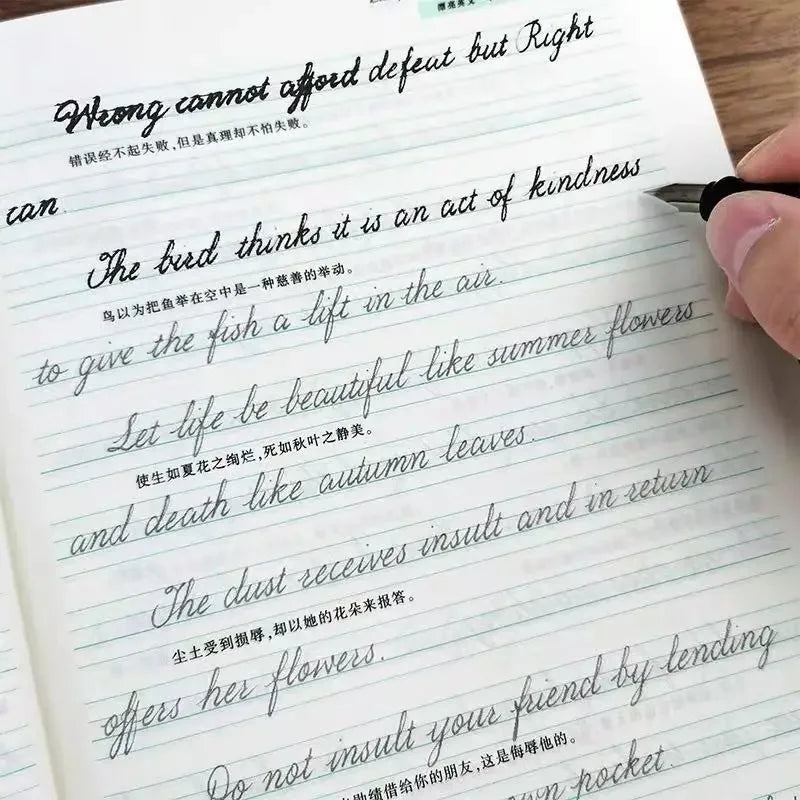 漂亮英文
Wrong cannot afford defeat but Right
错误经不起失败,但是真理却不怕失败。
can
The bird thinks it is an act of kindness
鸟以为把鱼举在空中是一种慈善的举动。
to give the fish a lift in the air.
Let life be beautiful like summer flowers
使生如夏花之绚烂,死如秋叶之静美。
and death like autumn leaves.
The dust receives insult and in return
尘土受到损辱,却以她的花朵来报答。
offers her flowers.
Do not insult your friend by lending
功绩借给你的朋友,这是侮辱他的。
own pocket.